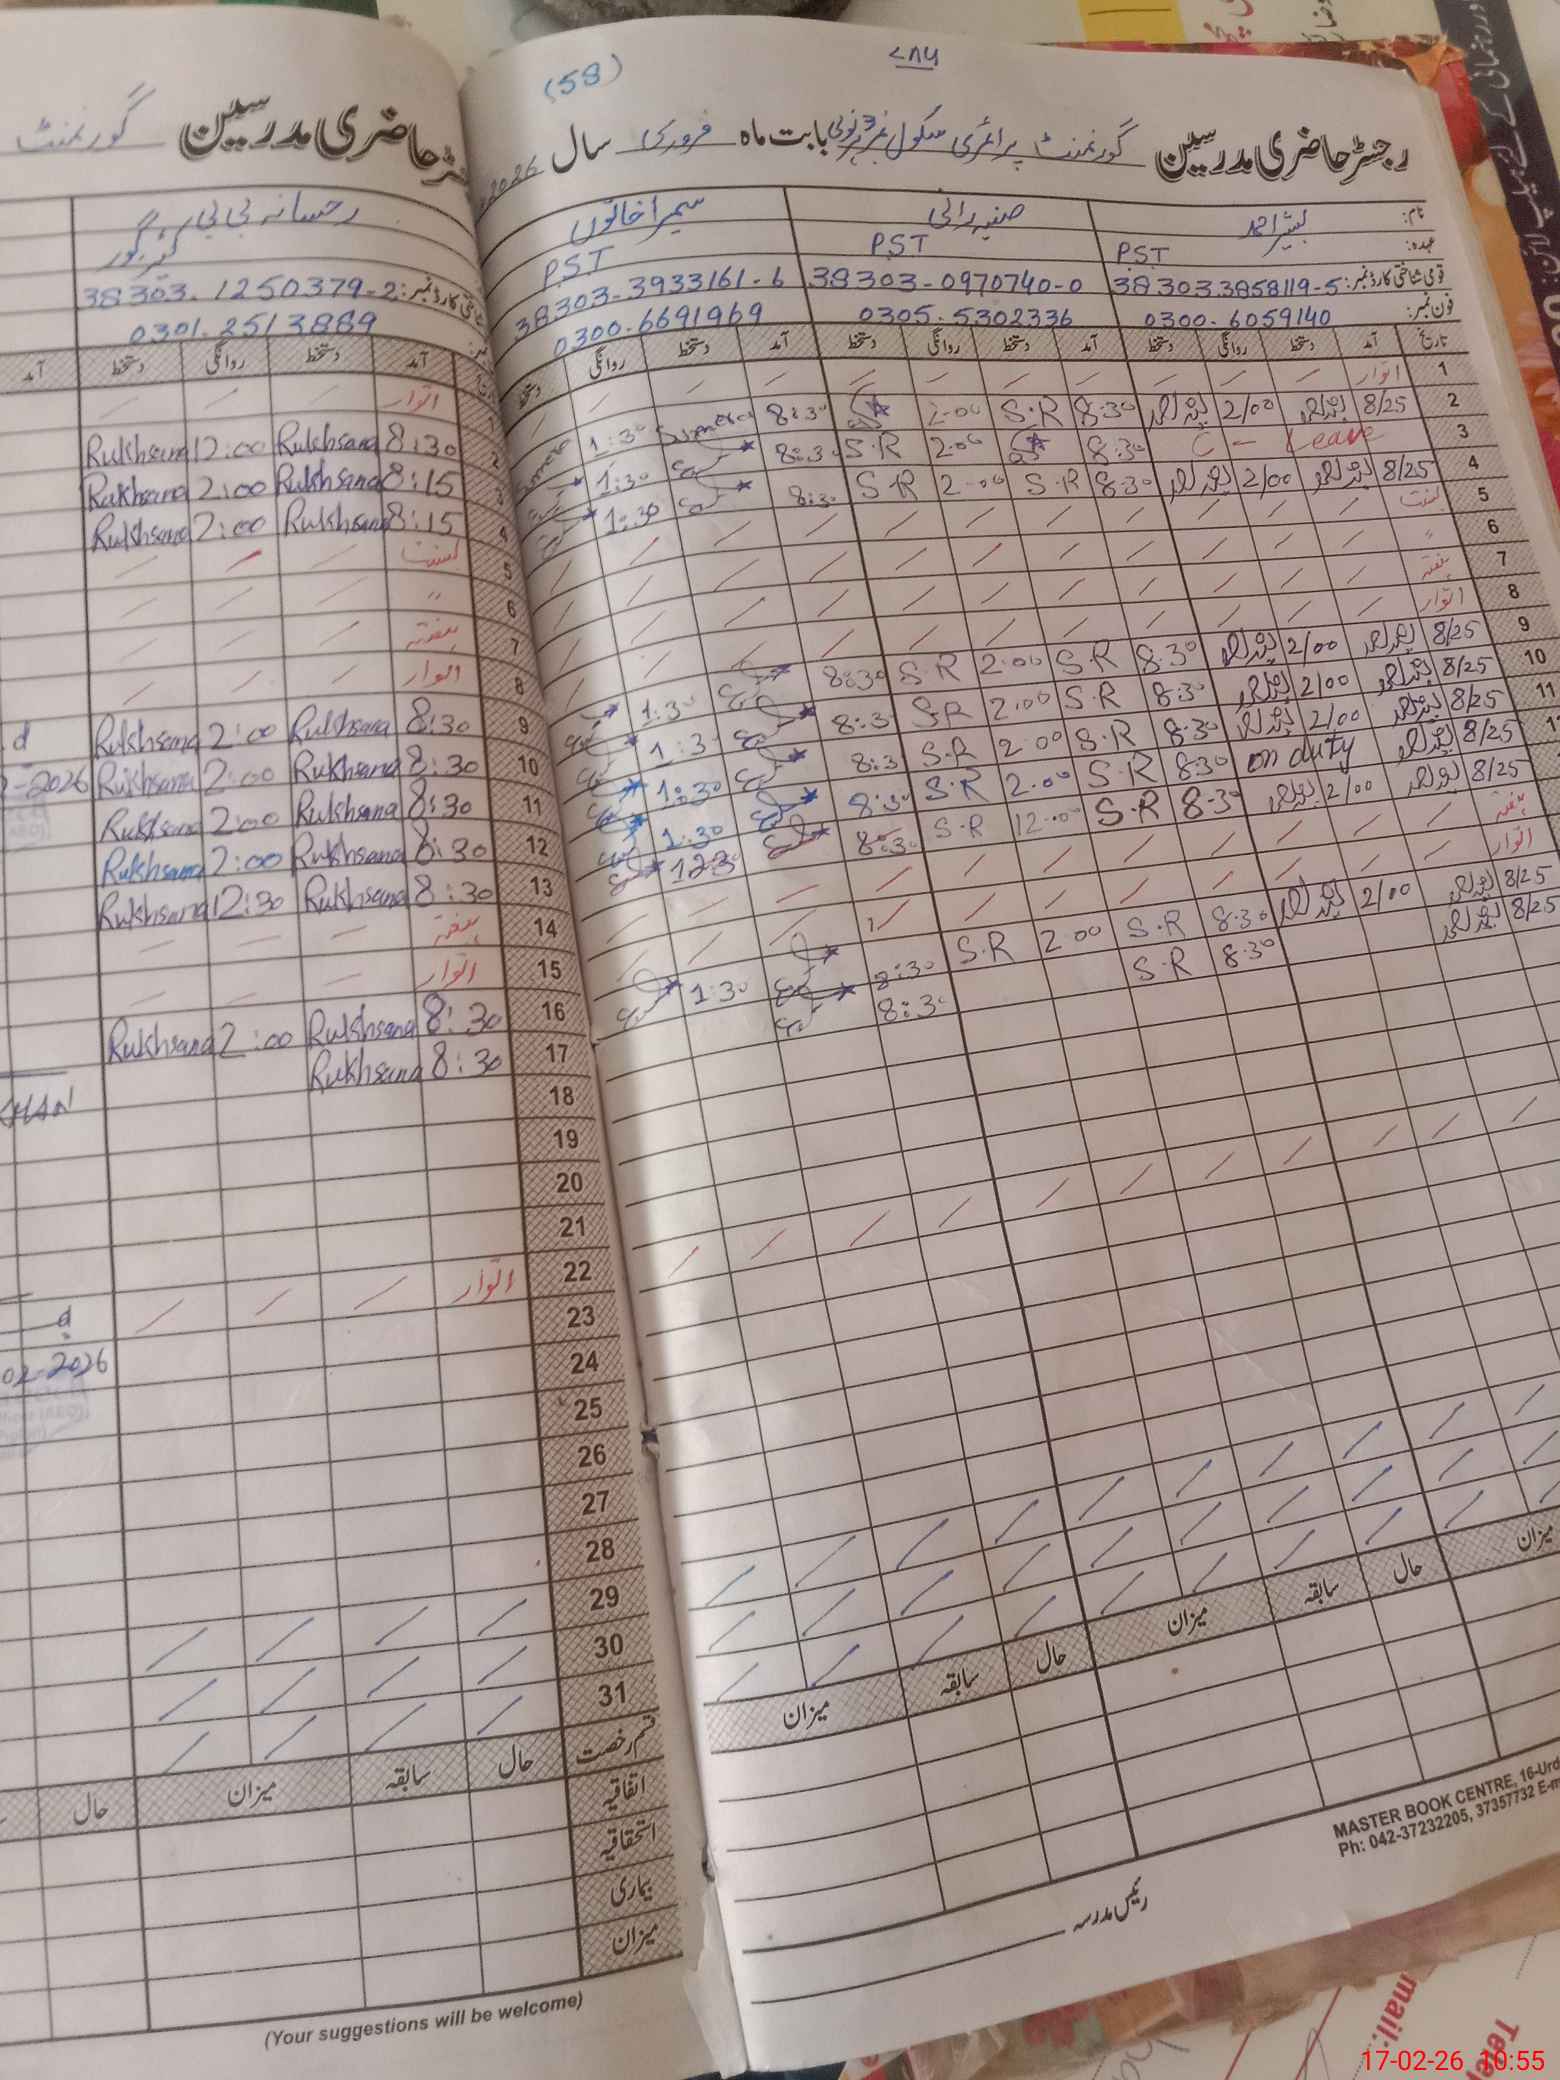 (58)
رجسٹر حاضری مدرسین گورنمنٹ پرائمری سکول نمبر 3 بابت ماہ فروری سال 2026
نام: بشیر احمد صفیہ رانی سمیرا خاتون
عہدہ: PST PST PST
قومی شناختی کارڈ نمبر: 38303.3858119-5 38303-0970740-0 38303-3933161-6
فون نمبر: 0300.6059140 0305.5302336 0300-6691969
تاریخ آمد دستخط روانگی دستخط آمد دستخط روانگی دستخط آمد دستخط روانگی دستخط
1 اتوار
2 8/25 2/00 8:30 S.R 2:00 8:30 Sumera 1:30
3 C - Leave 8:30 2:00 S.R 8:30 1:30
4 8/25 2/00 8:30 S.R 2:00 S.R 8:30 1:30
5
6 "
7 ہفتہ
8 اتوار
9 8/25 2/00 8:30 S.R 2:00 S.R 8:30 1:30
10 8/25 2/00 8:30 S.R 2:00 S.R 8:30 1:30
11 8/25 2/00 8:30 S.R 2:00 S.R 8:3 1:30
8/25 on duty 8:30 S.R 2:00 S.R 8:30 1:30
8/25 2/00 8:30 S.R 12:00 S.R 8:30 12:30
ہفتہ
اتوار
8/25 2/00 8:30 S.R 2:00 S.R 8:30 1:30
8/25 8:30 S.R 8:30
میزان حال سابقہ میزان حال سابقہ میزان
رئیس مدرسہ
MASTER BOOK CENTRE, 16-Urd
Ph: 042-37232205, 37357732 E-m
حاضری مدرسین گورنمنٹ
رخسانہ بی بی
38303.1250379-2
0301.2513889
آمد دستخط روانگی دستخط آمد
اتوار
2 8:30 Rukhsana 2:00 Rukhsana
3 8:15 Rukhsana 2:00 Rukhsana
4 8:15 Rukhsana 2:00 Rukhsana
5
6 "
7 ہفتہ
8 اتوار
9 8:30 Rukhsana 2:00 Rukhsana
10 8:30 Rukhsana 2:00 Rukhsana -2026
11 8:30 Rukhsana 2:00 Rukhsana
12 8:30 Rukhsana 2:00 Rukhsana
13 8:30 Rukhsana 12:30 Rukhsana
14 ہفتہ
15 اتوار
16 8:30 Rukhsana 2:00 Rukhsana
17 8:30 Rukhsana
18
19
20
21
22 اتوار
23
24
25
26
27
28
29
30
31
قسم رخصت حال سابقہ میزان حال
اتفاقیہ
استحقاقیہ
بیماری
میزان
KHAN
02-2026
(Your suggestions will be welcome)
mail:
17-02-26 10:55